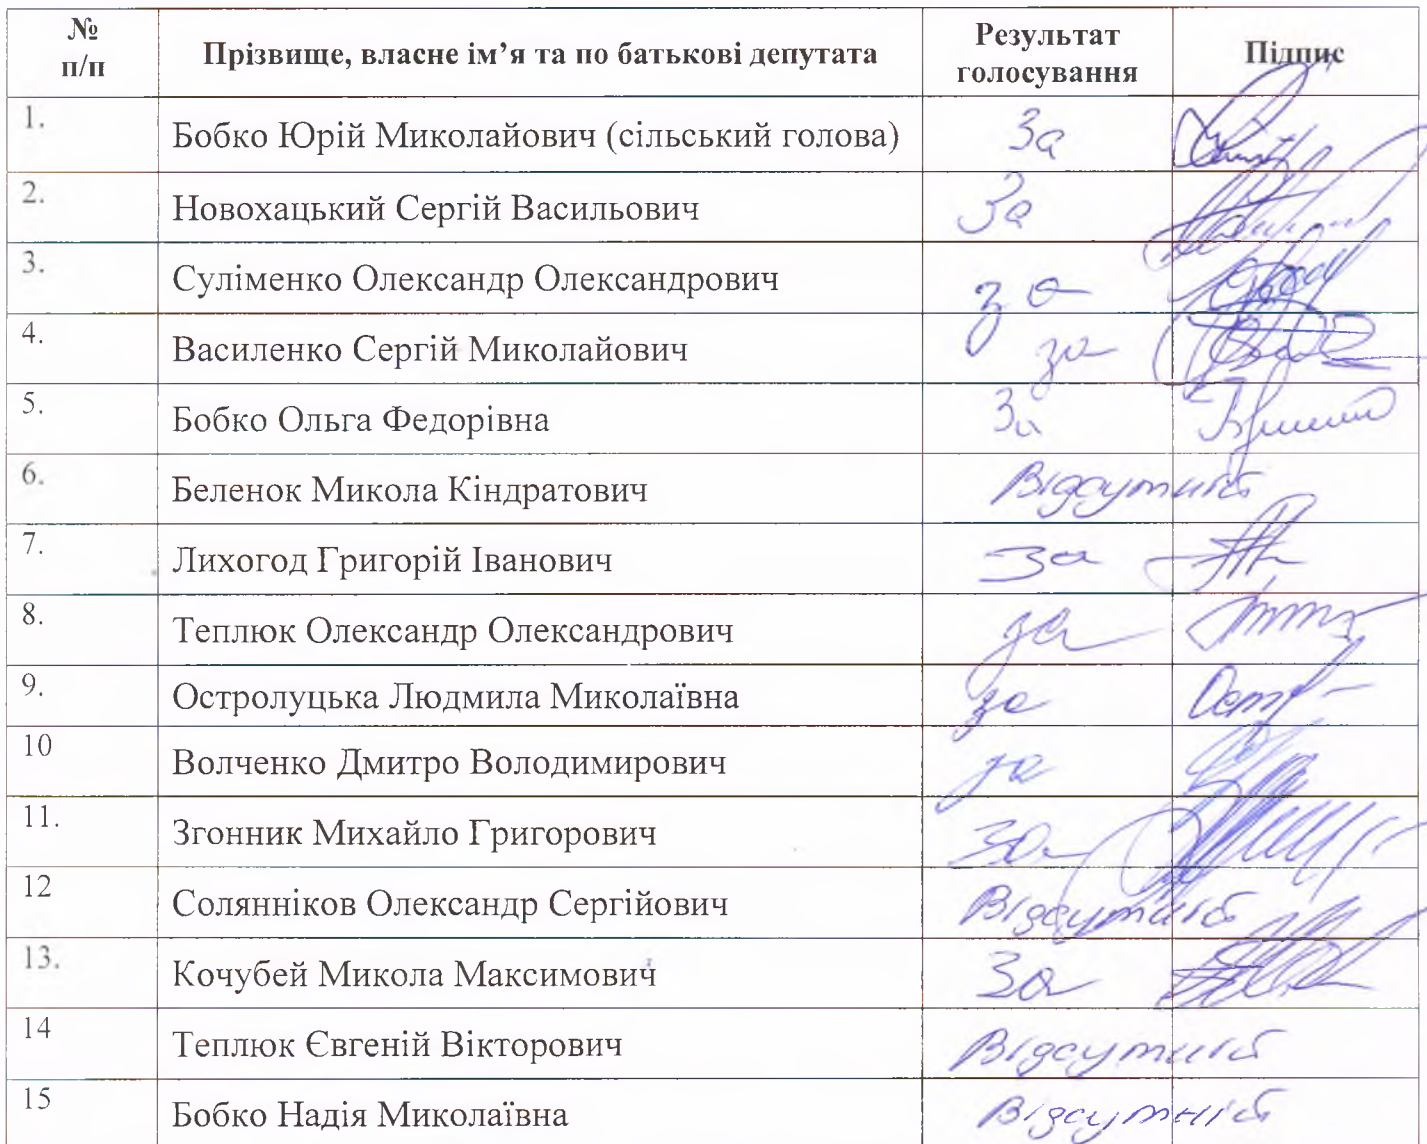 № п/п Прізвище, власне ім’я та по батькові депутата Результат голосування Підпис
1. Бобко Юрій Миколайович (сільський голова) За
2. Новохацький Сергій Васильович За
3. Суліменко Олександр Олександрович за
4. Василенко Сергій Миколайович за
5. Бобко Ольга Федорівна За
6. Беленок Микола Кіндратович Відсутній
7. Лихогод Григорій Іванович За
8. Теплюк Олександр Олександрович за
9. Остролуцька Людмила Миколаївна за
10 Волченко Дмитро Володимирович за
11. Згонник Михайло Григорович За
12 Солянніков Олександр Сергійович Відсутній
13. Кочубей Микола Максимович За
14 Теплюк Євгеній Вікторович Відсутній
15 Бобко Надія Миколаївна Відсутній